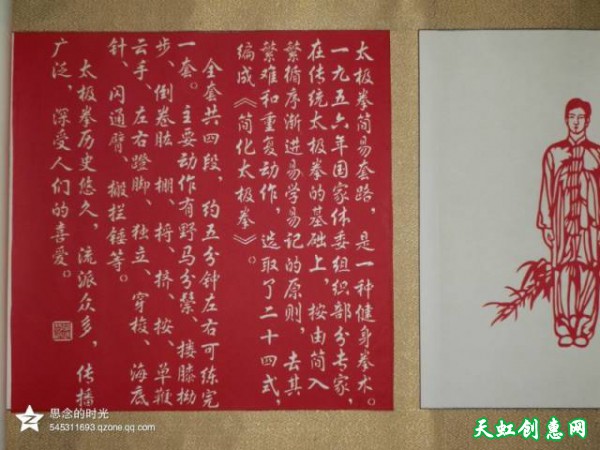 太极拳简易套路，是一种健身拳术。
一九五六年国家体委组织部分专家，
在传统太极拳的基础上，按由简入
繁循序渐进易学易记的原则，去其
繁难和重复动作，选取了二十四式，
编成《简化太极拳》。
全套共四段，约五分钟左右可练完
一套。主要动作有野马分鬃、搂膝拗
步、倒卷肱、棚、捋、挤、按、单鞭
云手、左右蹬脚、独立、穿梭、海底
针、闪通臂、搬拦锤等。
太极拳历史悠久，流派众多，传播
广泛，深受人们的喜爱。
思念的时光
545311693.qzone.qq.com
天虹创惠网